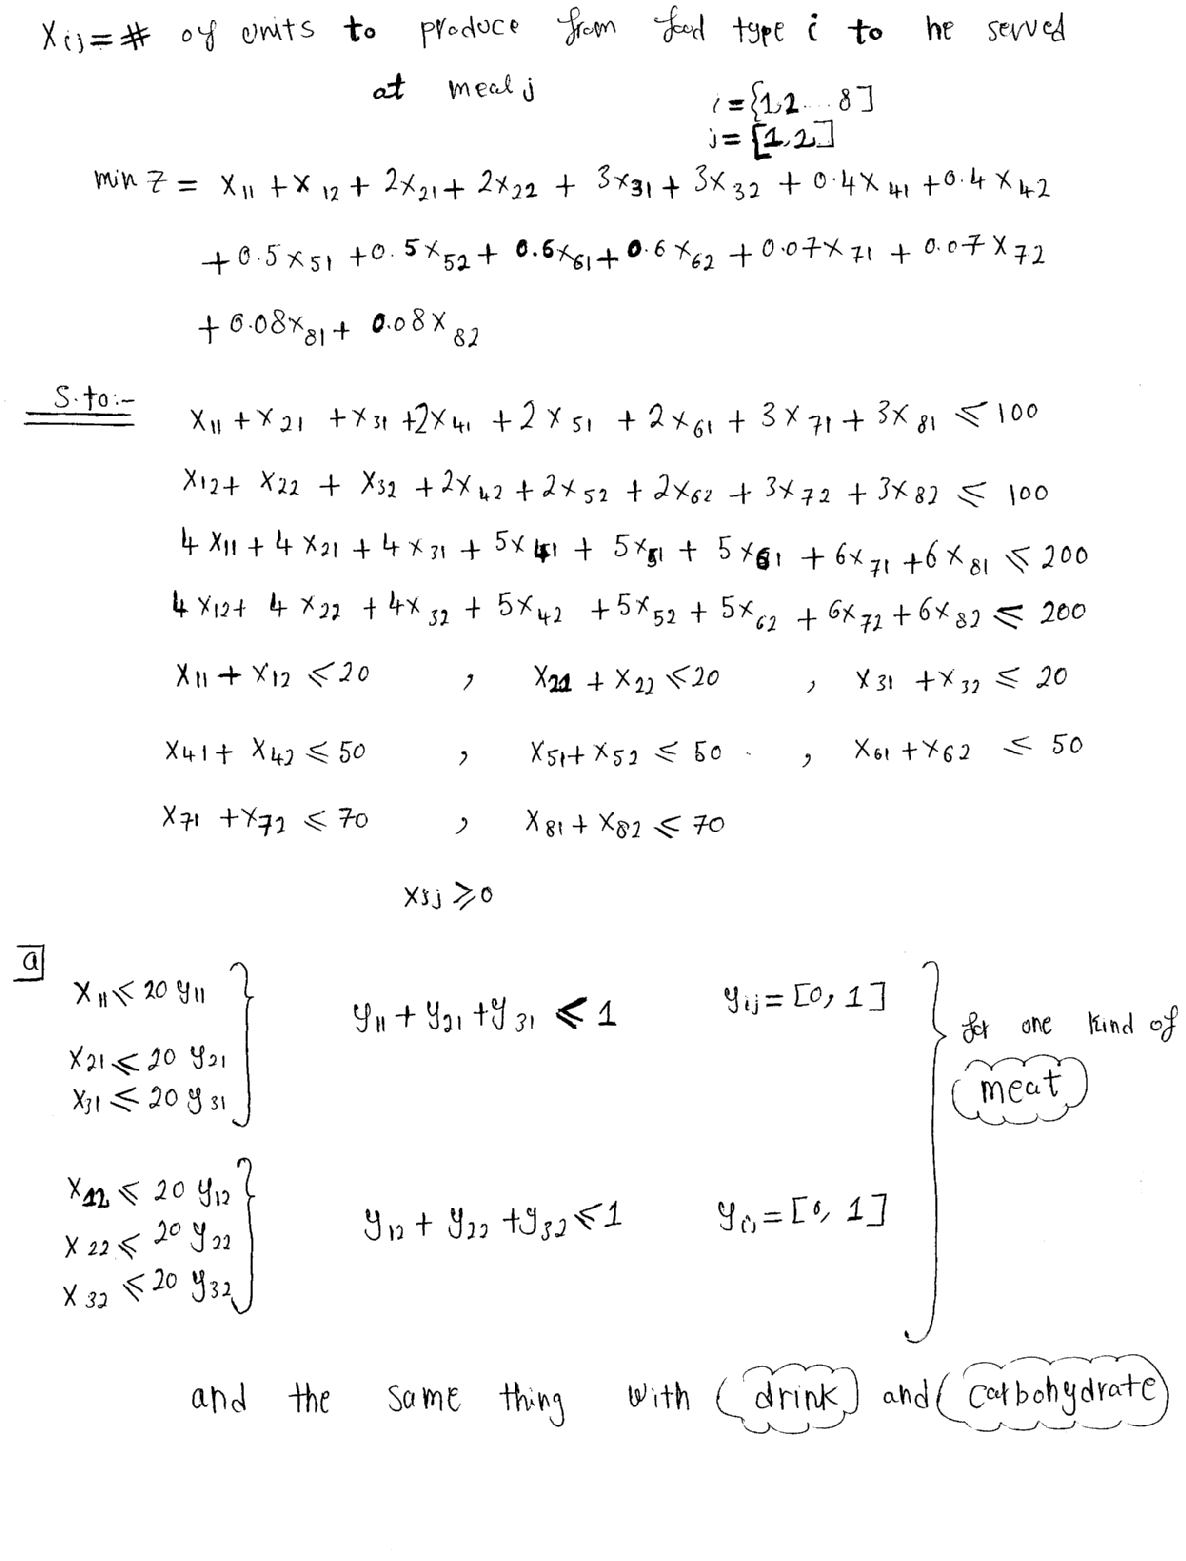 Xij = # of units to produce from food type i to be served
at meal j
i = {1,2 ... 8]
j = [1,2]
min Z = X11 + X12 + 2X21 + 2X22 + 3X31 + 3X32 + 0.4X41 + 0.4X42
+ 0.5X51 + 0.5X52 + 0.6X61 + 0.6X62 + 0.07X71 + 0.07X72
+ 0.08X81 + 0.08X82
S.to:-
X11 + X21 + X31 + 2X41 + 2X51 + 2X61 + 3X71 + 3X81 ≤ 100
X12 + X22 + X32 + 2X42 + 2X52 + 2X62 + 3X72 + 3X82 ≤ 100
4X11 + 4X21 + 4X31 + 5X41 + 5X51 + 5X61 + 6X71 + 6X81 ≤ 200
4X12 + 4X22 + 4X32 + 5X42 + 5X52 + 5X62 + 6X72 + 6X82 ≤ 200
X11 + X12 ≤ 20 , X21 + X22 ≤ 20 , X31 + X32 ≤ 20
X41 + X42 ≤ 50 , X51 + X52 ≤ 50 , X61 + X62 ≤ 50
X71 + X72 ≤ 70 , X81 + X82 ≤ 70
Xij ≥ 0
a
X11 ≤ 20 y11
X21 ≤ 20 y21
X31 ≤ 20 y31
y11 + y21 + y31 ≤ 1
yij = [0, 1]
for one kind of
meat
X12 ≤ 20 y12
X22 ≤ 20 y22
X32 ≤ 20 y32
y12 + y22 + y32 ≤ 1
yij = [0, 1]
and the same thing with (drink) and (carbohydrate)